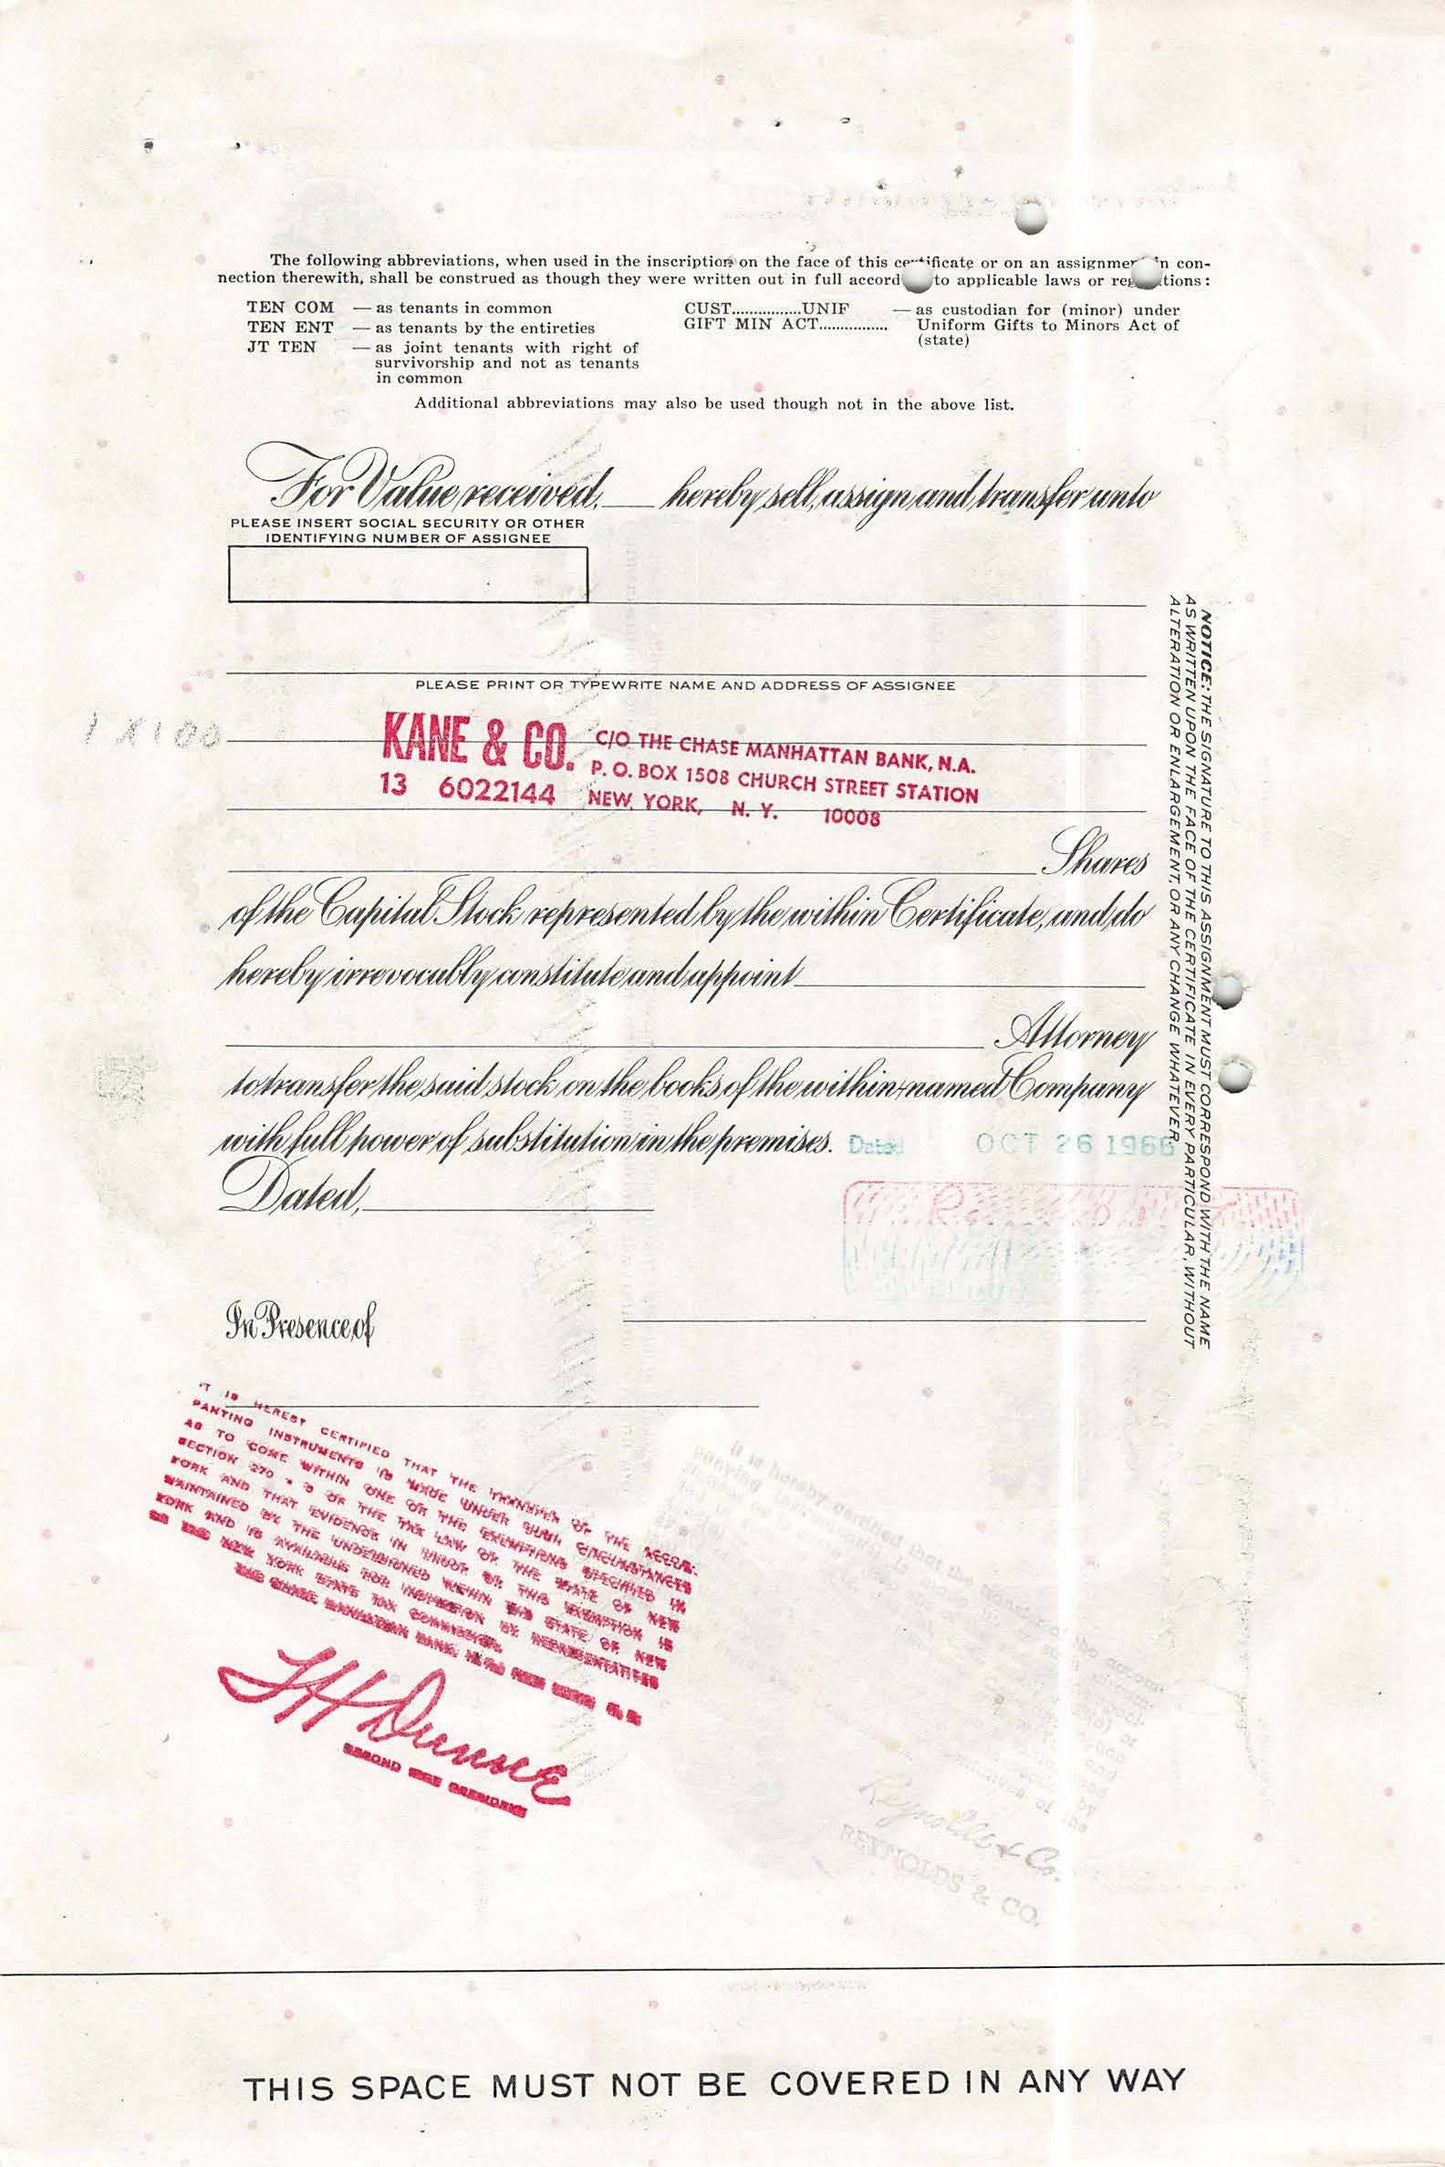 The following abbreviations, when used in the inscription on the face of this certificate or on an assignment in con-
nection therewith, shall be construed as though they were written out in full accord to applicable laws or regulations:
TEN COM — as tenants in common
TEN ENT — as tenants by the entireties
JT TEN — as joint tenants with right of
survivorship and not as tenants
in common
CUST................UNIF — as custodian for (minor) under
GIFT MIN ACT................ Uniform Gifts to Minors Act of
(state)
Additional abbreviations may also be used though not in the above list.
For Value received, ____ hereby sell, assign and transfer unto
PLEASE INSERT SOCIAL SECURITY OR OTHER
IDENTIFYING NUMBER OF ASSIGNEE
PLEASE PRINT OR TYPEWRITE NAME AND ADDRESS OF ASSIGNEE
1 X 100
KANE & CO.
13 6022144
C/O THE CHASE MANHATTAN BANK, N.A.
P. O. BOX 1508 CHURCH STREET STATION
NEW YORK, N. Y. 10008
Shares
of the Capital Stock represented by the within Certificate, and do
hereby irrevocably constitute and appoint
Attorney
to transfer the said stock on the books of the within-named Company
with full power of substitution in the premises.
Dated OCT 26 1966
Dated,
In Presence of
NOTICE: THE SIGNATURE TO THIS ASSIGNMENT MUST CORRESPOND WITH THE NAME
AS WRITTEN UPON THE FACE OF THE CERTIFICATE IN EVERY PARTICULAR, WITHOUT
ALTERATION OR ENLARGEMENT, OR ANY CHANGE WHATEVER.
IT IS HEREBY CERTIFIED THAT THE TRANSFER OF THE ACCOM-
PANYING INSTRUMENTS IS MADE UNDER SUCH CIRCUMSTANCES
AS TO COME WITHIN ONE OF THE EXEMPTIONS SPECIFIED IN
SECTION 270 OF THE TAX LAW OF THE STATE OF NEW
YORK AND THAT EVIDENCE IN PROOF OF THIS EXEMPTION IS
MAINTAINED BY THE UNDERSIGNED WITHIN THE STATE OF NEW
YORK AND IS AVAILABLE FOR INSPECTION BY REPRESENTATIVES
OF THE NEW YORK STATE TAX COMMISSION.
THE CHASE MANHATTAN BANK
SECOND VICE PRESIDENT
It is hereby certified that the transfer of the accom-
panying
Reynolds & Co.
REYNOLDS & CO.
THIS SPACE MUST NOT BE COVERED IN ANY WAY